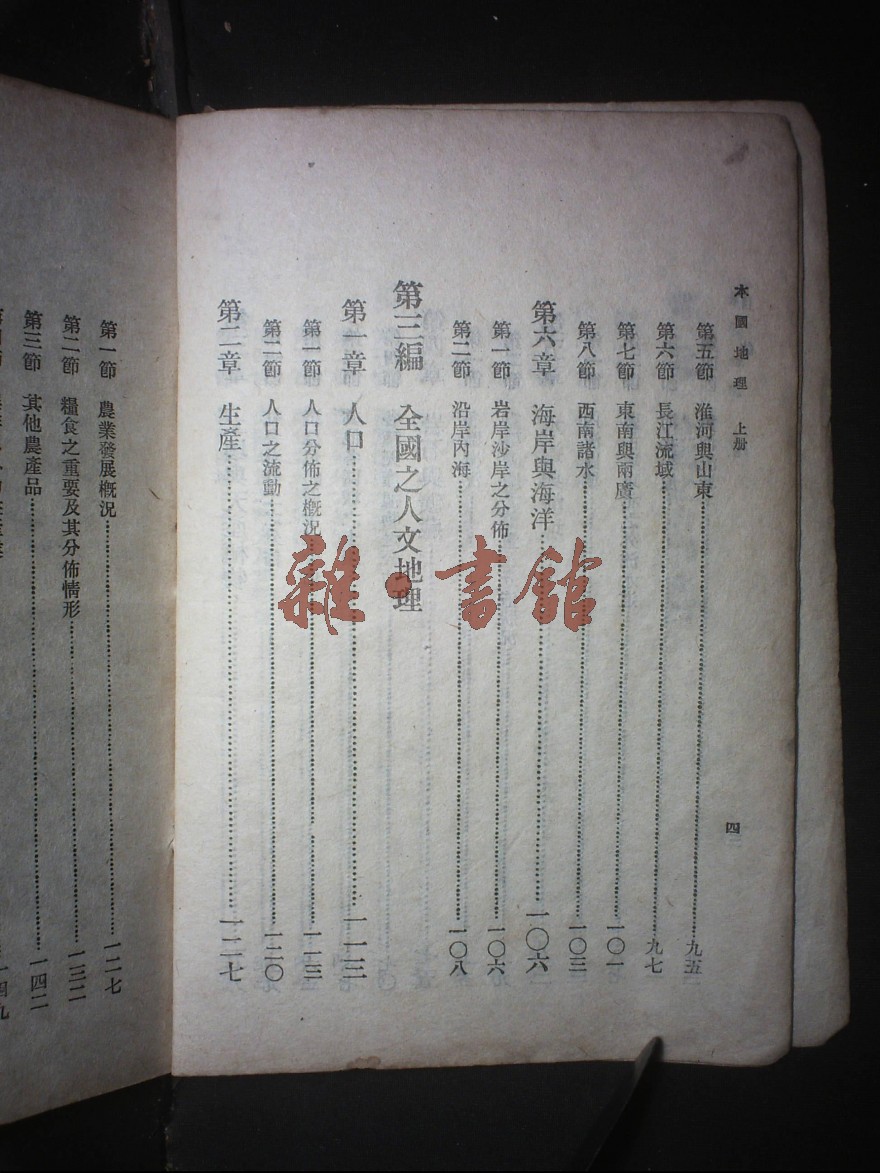 本國地理 上册
四
第五節 淮河與山東 九五
第六節 長江流域 九七
第七節 東南與兩廣 一〇一
第八節 西南諸水 一〇三
第六章 海岸與海洋 一〇六
第一節 岩岸沙岸之分佈 一〇六
第二節 沿岸內海 一〇八
第三編 全國之人文地理
第一章 人口 一一三
第一節 人口分佈之概況 一一三
第二節 人口之流動 一二〇
第二章 生產 一二七
第一節 農業發展概況 一二七
第二節 糧食之重要及其分佈情形 一三二
第三節 其他農產品 一四二
一四九
雜·書館